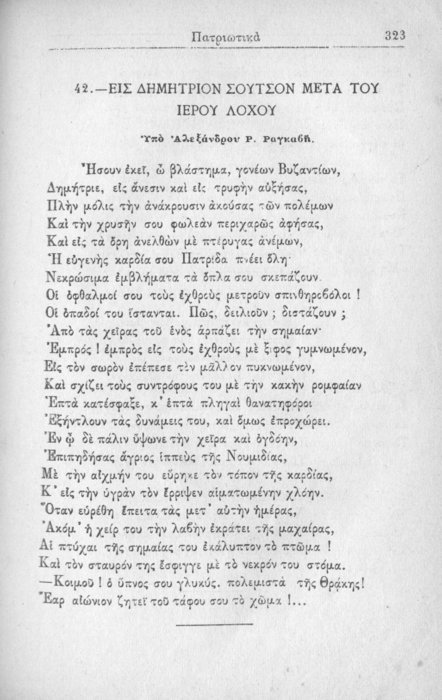 Πατριωτικὰ 323
42.—ΕΙΣ ΔΗΜΗΤΡΙΟΝ ΣΟΥΤΣΟΝ ΜΕΤΑ ΤΟΥ
ΙΕΡΟΥ ΛΟΧΟΥ
Ὑπὸ Ἀλεξάνδρου Ρ. Ραγκαβῆ.
Ἤσουν ἐκεῖ, ὦ βλάστημα, γονέων Βυζαντίων,
Δημήτριε, εἰς ἄνεσιν καὶ εἰς τρυφὴν αὐξήσας,
Πλὴν μόλις τὴν ἀνάκρουσιν ἀκούσας τῶν πολέμων
Καὶ τὴν χρυσῆν σου φωλεὰν περιχαρῶς ἀφήσας,
Καὶ εἰς τὰ ὄρη ἀνελθὼν μὲ πτέρυγας ἀνέμων,
Ἡ εὐγενὴς καρδία σου Πατρίδα πνέει ὅλη·
Νεκρώσιμα ἐμβλήματα τὰ ὅπλα σου σκεπάζουν.
Οἱ ὀφθαλμοί σου τοὺς ἐχθροὺς μετροῦν σπινθηροβόλοι !
Οἱ ὀπαδοί του ἵστανται. Πῶς, δειλιοῦν ; διστάζουν ;
Ἀπὸ τὰς χεῖρας τοῦ ἑνὸς ἁρπάζει τὴν σημαίαν·
Ἐμπρός ! ἐμπρὸς εἰς τοὺς ἐχθροὺς μὲ ξίφος γυμνωμένον,
Εἰς τὸν σωρὸν ἐπέπεσε τὸν μᾶλλον πυκνωμένον,
Καὶ σχίζει τοὺς συντρόφους του μὲ τὴν κακὴν ρομφαίαν
Ἑπτὰ κατέσφαξε, κ' ἑπτὰ πληγαὶ θανατηφόροι
Ἐξήντλουν τὰς δυνάμεις του, καὶ ὅμως ἐπροχώρει.
Ἐν ᾧ δὲ πάλιν ὕψωνε τὴν χεῖρα καὶ ὀγδόην,
Ἐπιπηδήσας ἄγριος ἱππεὺς τῆς Νουμιδίας,
Μὲ τὴν αἰχμήν του εὕρηκε τὸν τόπον τῆς καρδίας,
Κ' εἰς τὴν ὑγρὰν τὸν ἔρριψεν αἱματωμένην χλόην.
Ὅταν εὑρέθη ἔπειτα τὰς μετ' αὐτὴν ἡμέρας,
Ἀκόμ' ἡ χείρ του τὴν λαβὴν ἐκράτει τῆς μαχαίρας,
Αἱ πτύχαι τῆς σημαίας του ἐκάλυπτον τὸ πτῶμα !
Καὶ τὸν σταυρόν της ἔσφιγγε μὲ τὸ νεκρόν του στόμα.
—Κοιμοῦ ! ὁ ὕπνος σου γλυκύς. πολεμιστὰ τῆς Θρᾴκης!
Ἔαρ αἰώνιον ζητεῖ τοῦ τάφου σου τὸ χῶμα !...